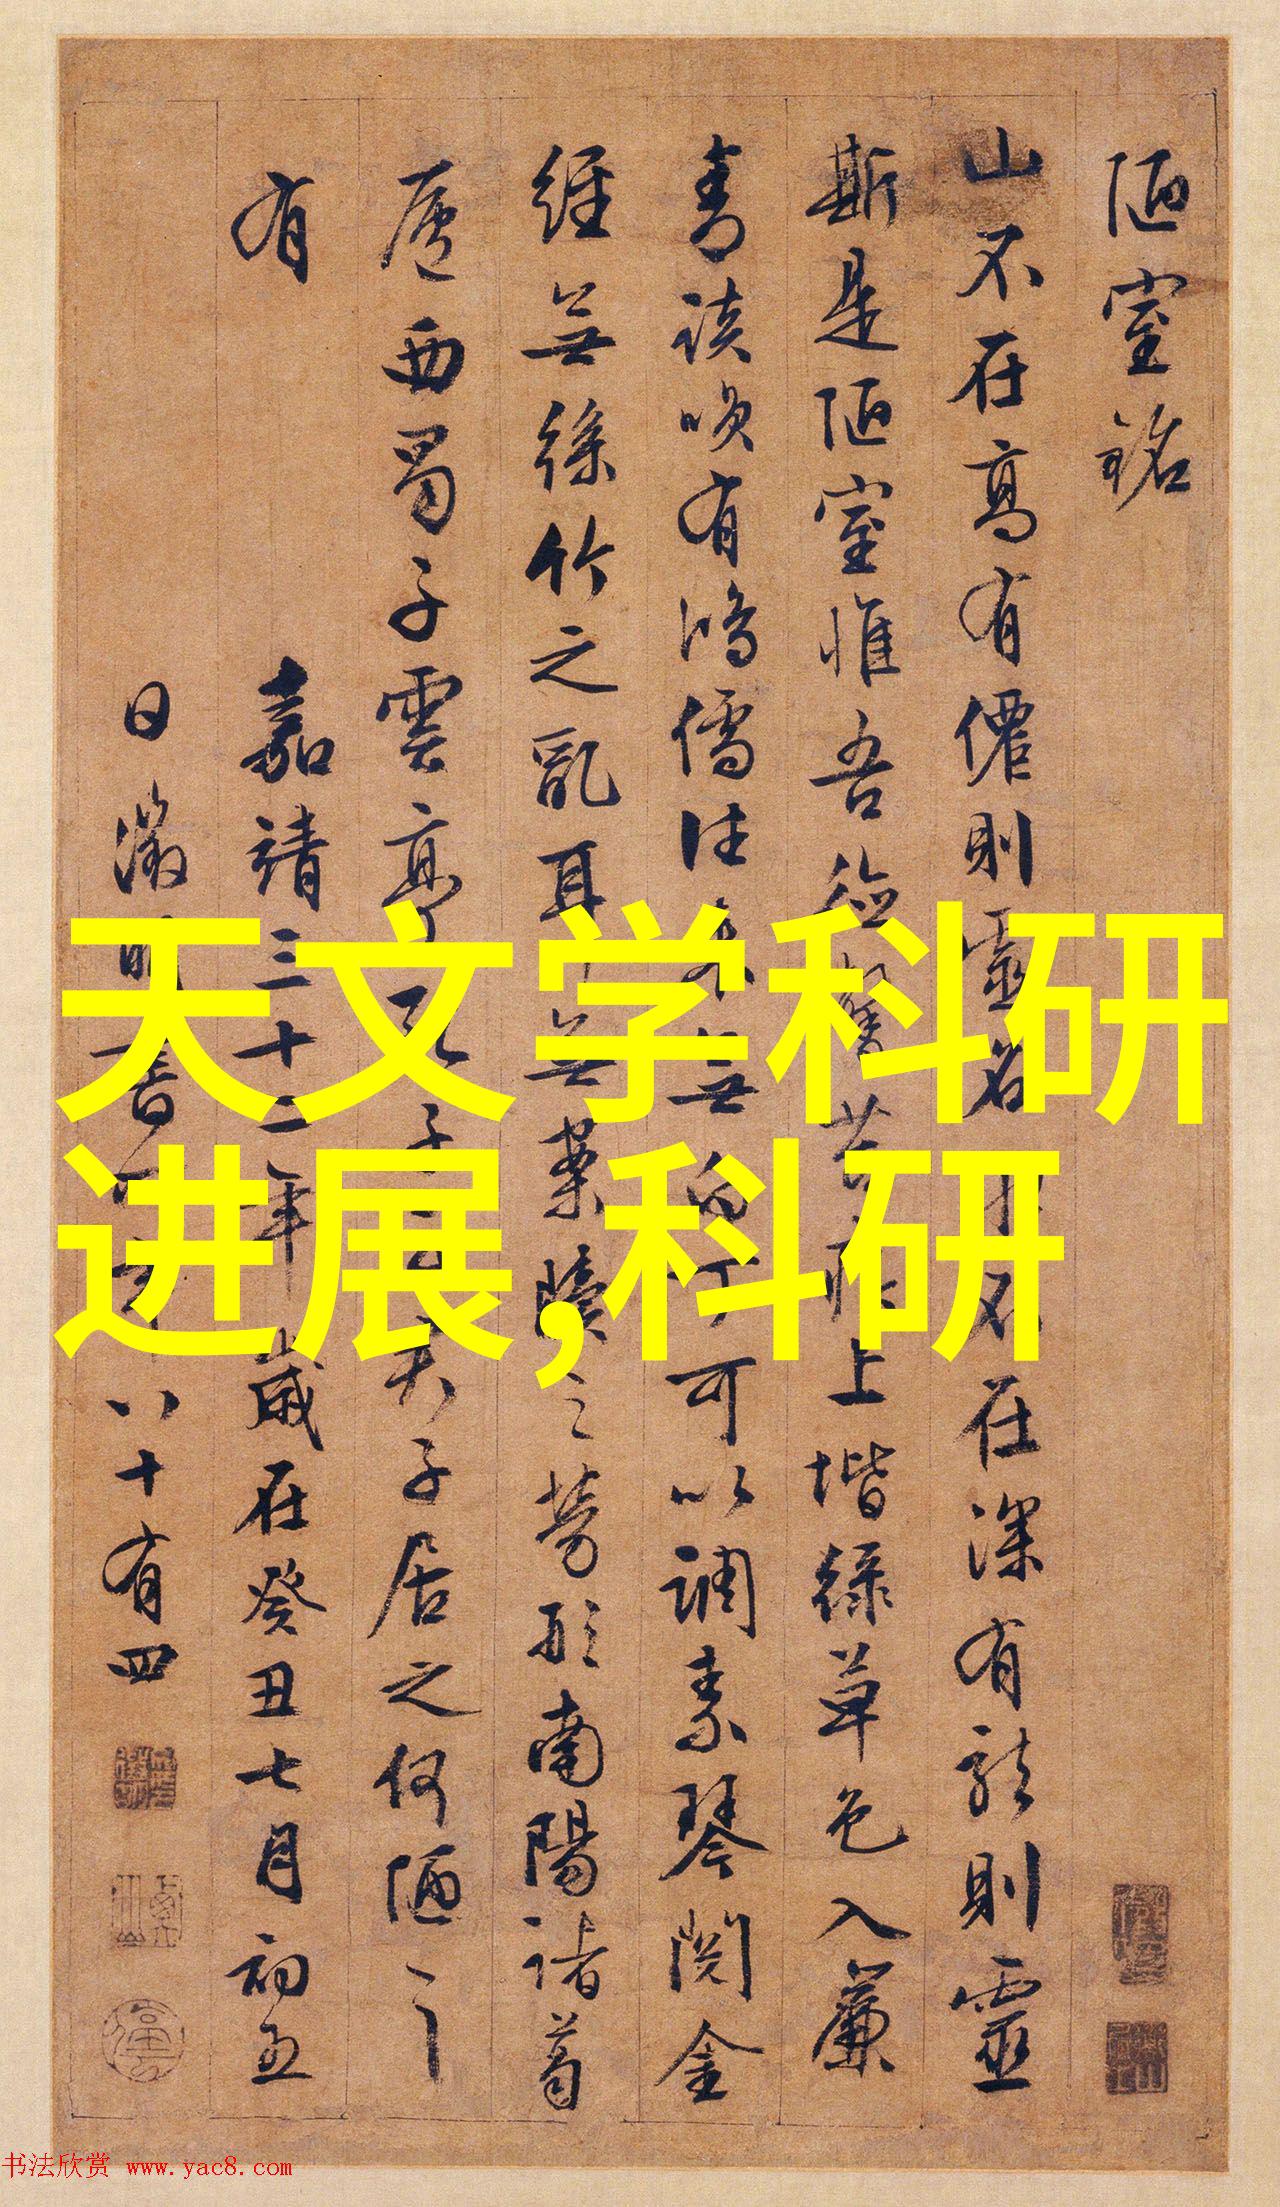 陋室銘
山不在高有僊則靈名水不在深有龍則靈
斯是陋室惟吾德馨苔痕上堦綠草色入簾
青談笑有鴻儒往來無白丁可以調素琴閱金
經無絲竹之亂耳無案牘之勞形南陽諸葛
廬西蜀子雲亭孔子云夫子居之何陋之
有 嘉靖三十二年歲在癸丑七月初五
日徵明書時年八十有四
天文学科研
进展,科研
书法欣赏 www.yac8.com